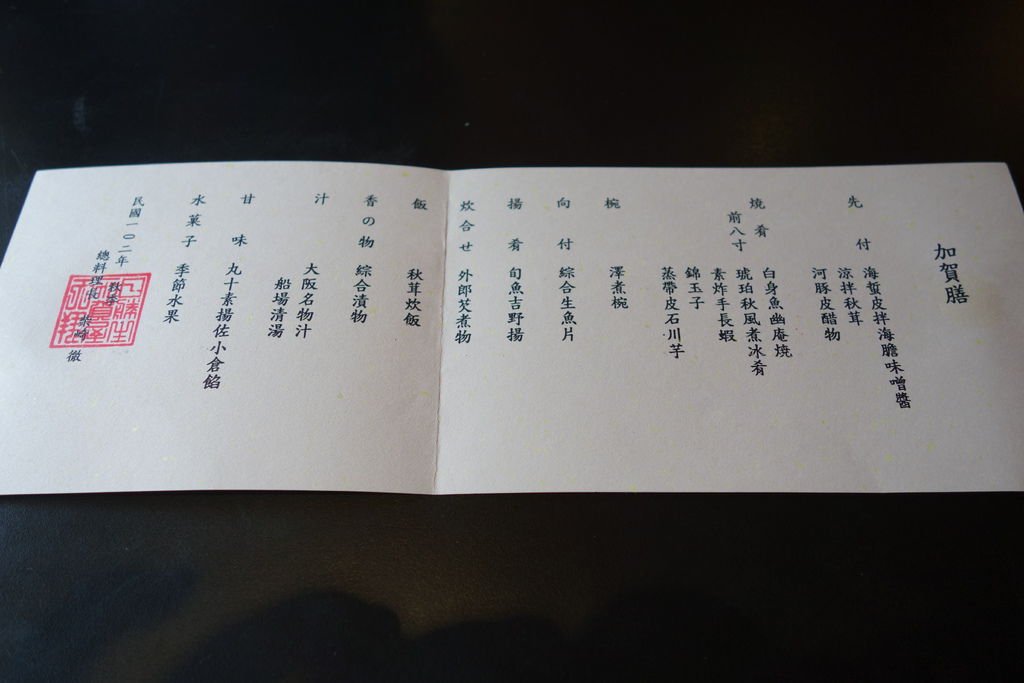 加賀膳
先付
海蜇皮拌海膽味噌醬
涼拌秋茸
河豚皮醋物
燒肴
前八寸
白身魚幽庵燒
琥珀秋風煮冰肴
素炸手長蝦
錦玉子
蒸帶皮石川芋
椀
澤煮椀
向付
綜合生魚片
揚肴
旬魚吉野揚
炊合せ
外郎芡煮物
飯
秋茸炊飯
香の物
綜合漬物
汁
大阪名物汁
船場清湯
甘味
丸十素揚佐小倉餡
水菓子
季節水果
民國一〇二年
秋季
總料理長 柴崎 徹